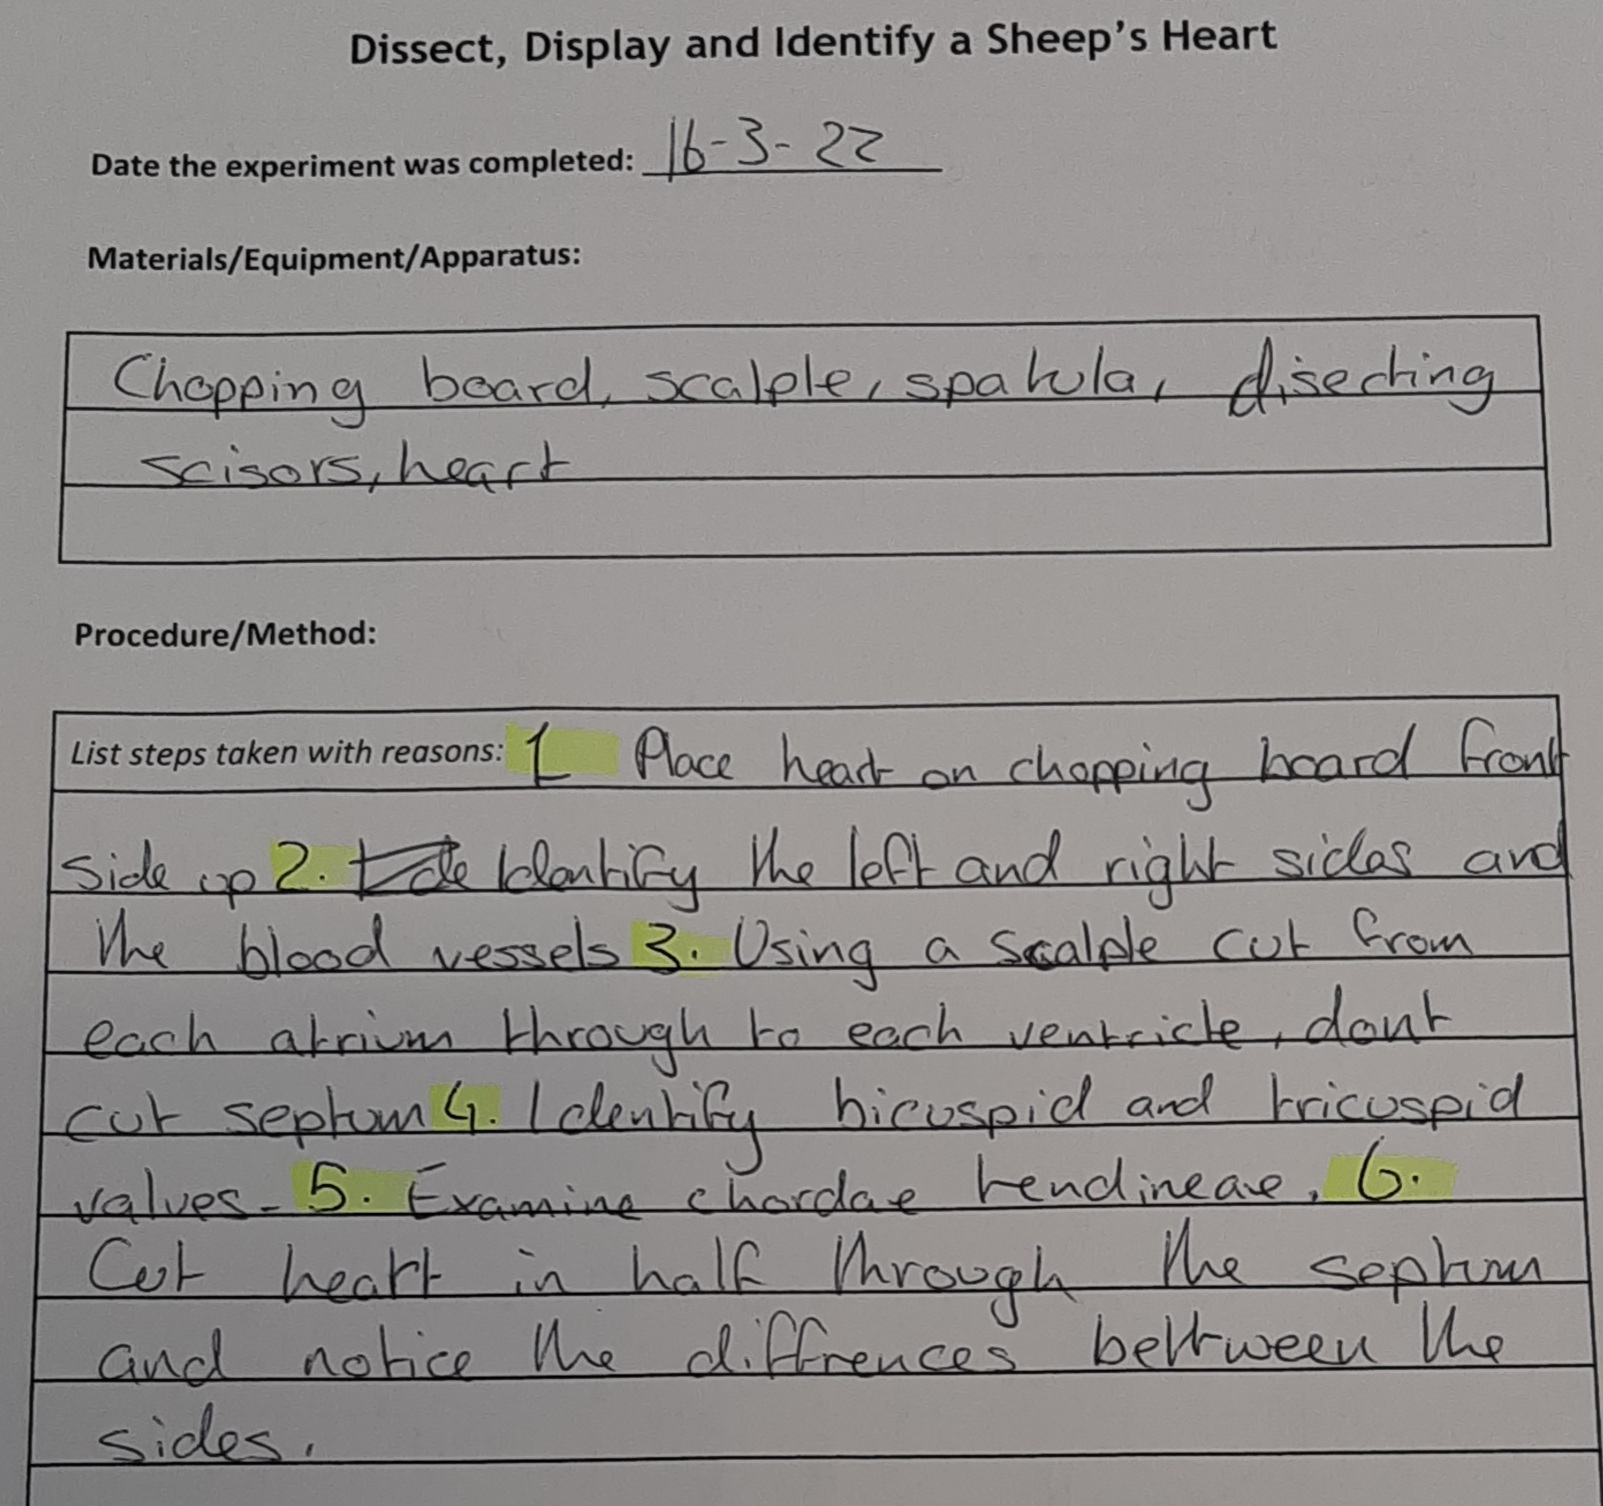 Dissect, Display and Identify a Sheep's Heart
Date the experiment was completed: 16-3-22
Materials/Equipment/Apparatus:
Chopping board, scalple, spatula, disecting
scisors, heart
Procedure/Method:
List steps taken with reasons: 1 Place heart on chopping board front
side up 2. Identify the left and right sides and
the blood vessels 3. Using a scalple cut from
each atrium through to each ventricle, dont
cut septum 4. Identify bicuspid and tricuspid
valves. 5. Examine chordae tendineae. 6.
Cut heart in half through the septum
and notice the diffrences bettween the
sides.